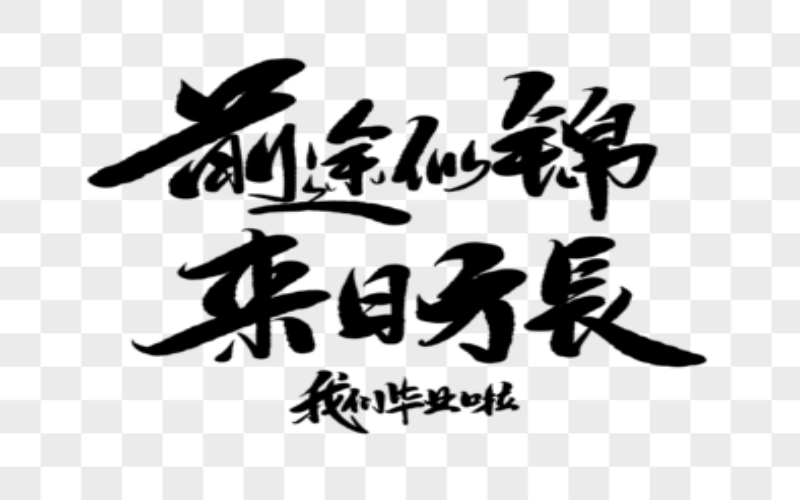 前途似锦
来日方長
我们毕业啦